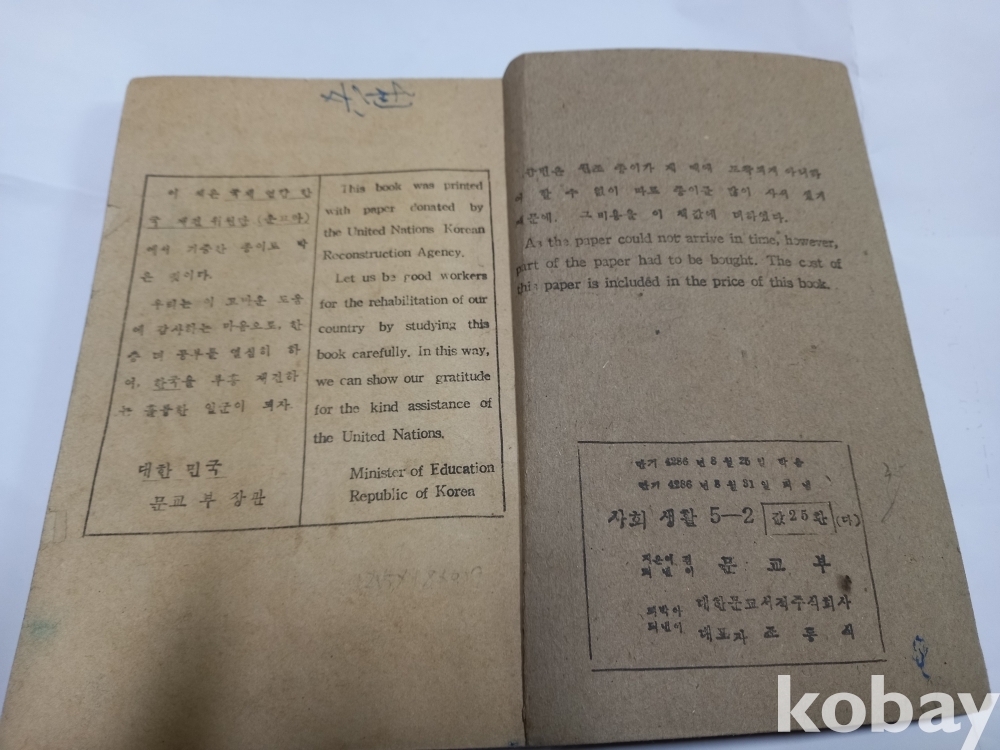 이 책은 국제 연합 한
국 재건 위원단 (운끄라)
에서 기증한 종이로 박
은 것이다.
우리는 이 고마운 도움
에 감사하는 마음으로, 한
층 더 공부를 열심히 하
여, 한국을 부흥 재건하
는 훌륭한 일군이 되자.
대한 민국
문교부 장관
This book was printed
with paper donated by
the United Nations Korean
Reconstruction Agency.
Let us be good workers
for the rehabilitation of our
country by studying this
book carefully. In this way,
we can show our gratitude
for the kind assistance of
the United Nations.
Minister of Education
Republic of Korea
원조 종이가 제 때에 도착되지 아니하
여 할 수 없이 따로 종이를 많이 사서 썼기
때문에, 그 비용을 이 책값에 더하였다.
As the paper could not arrive in time, however,
part of the paper had to be bought. The cost of
this paper is included in the price of this book.
단기 4286 년 8 월 25 일 박음
단기 4286 년 8 월 31 일 펴냄
사회 생활 5—2 값 25 환 (다)
지은이 겸
펴낸이 문 교 부
대한문교서적주식회사
대표자
kobay